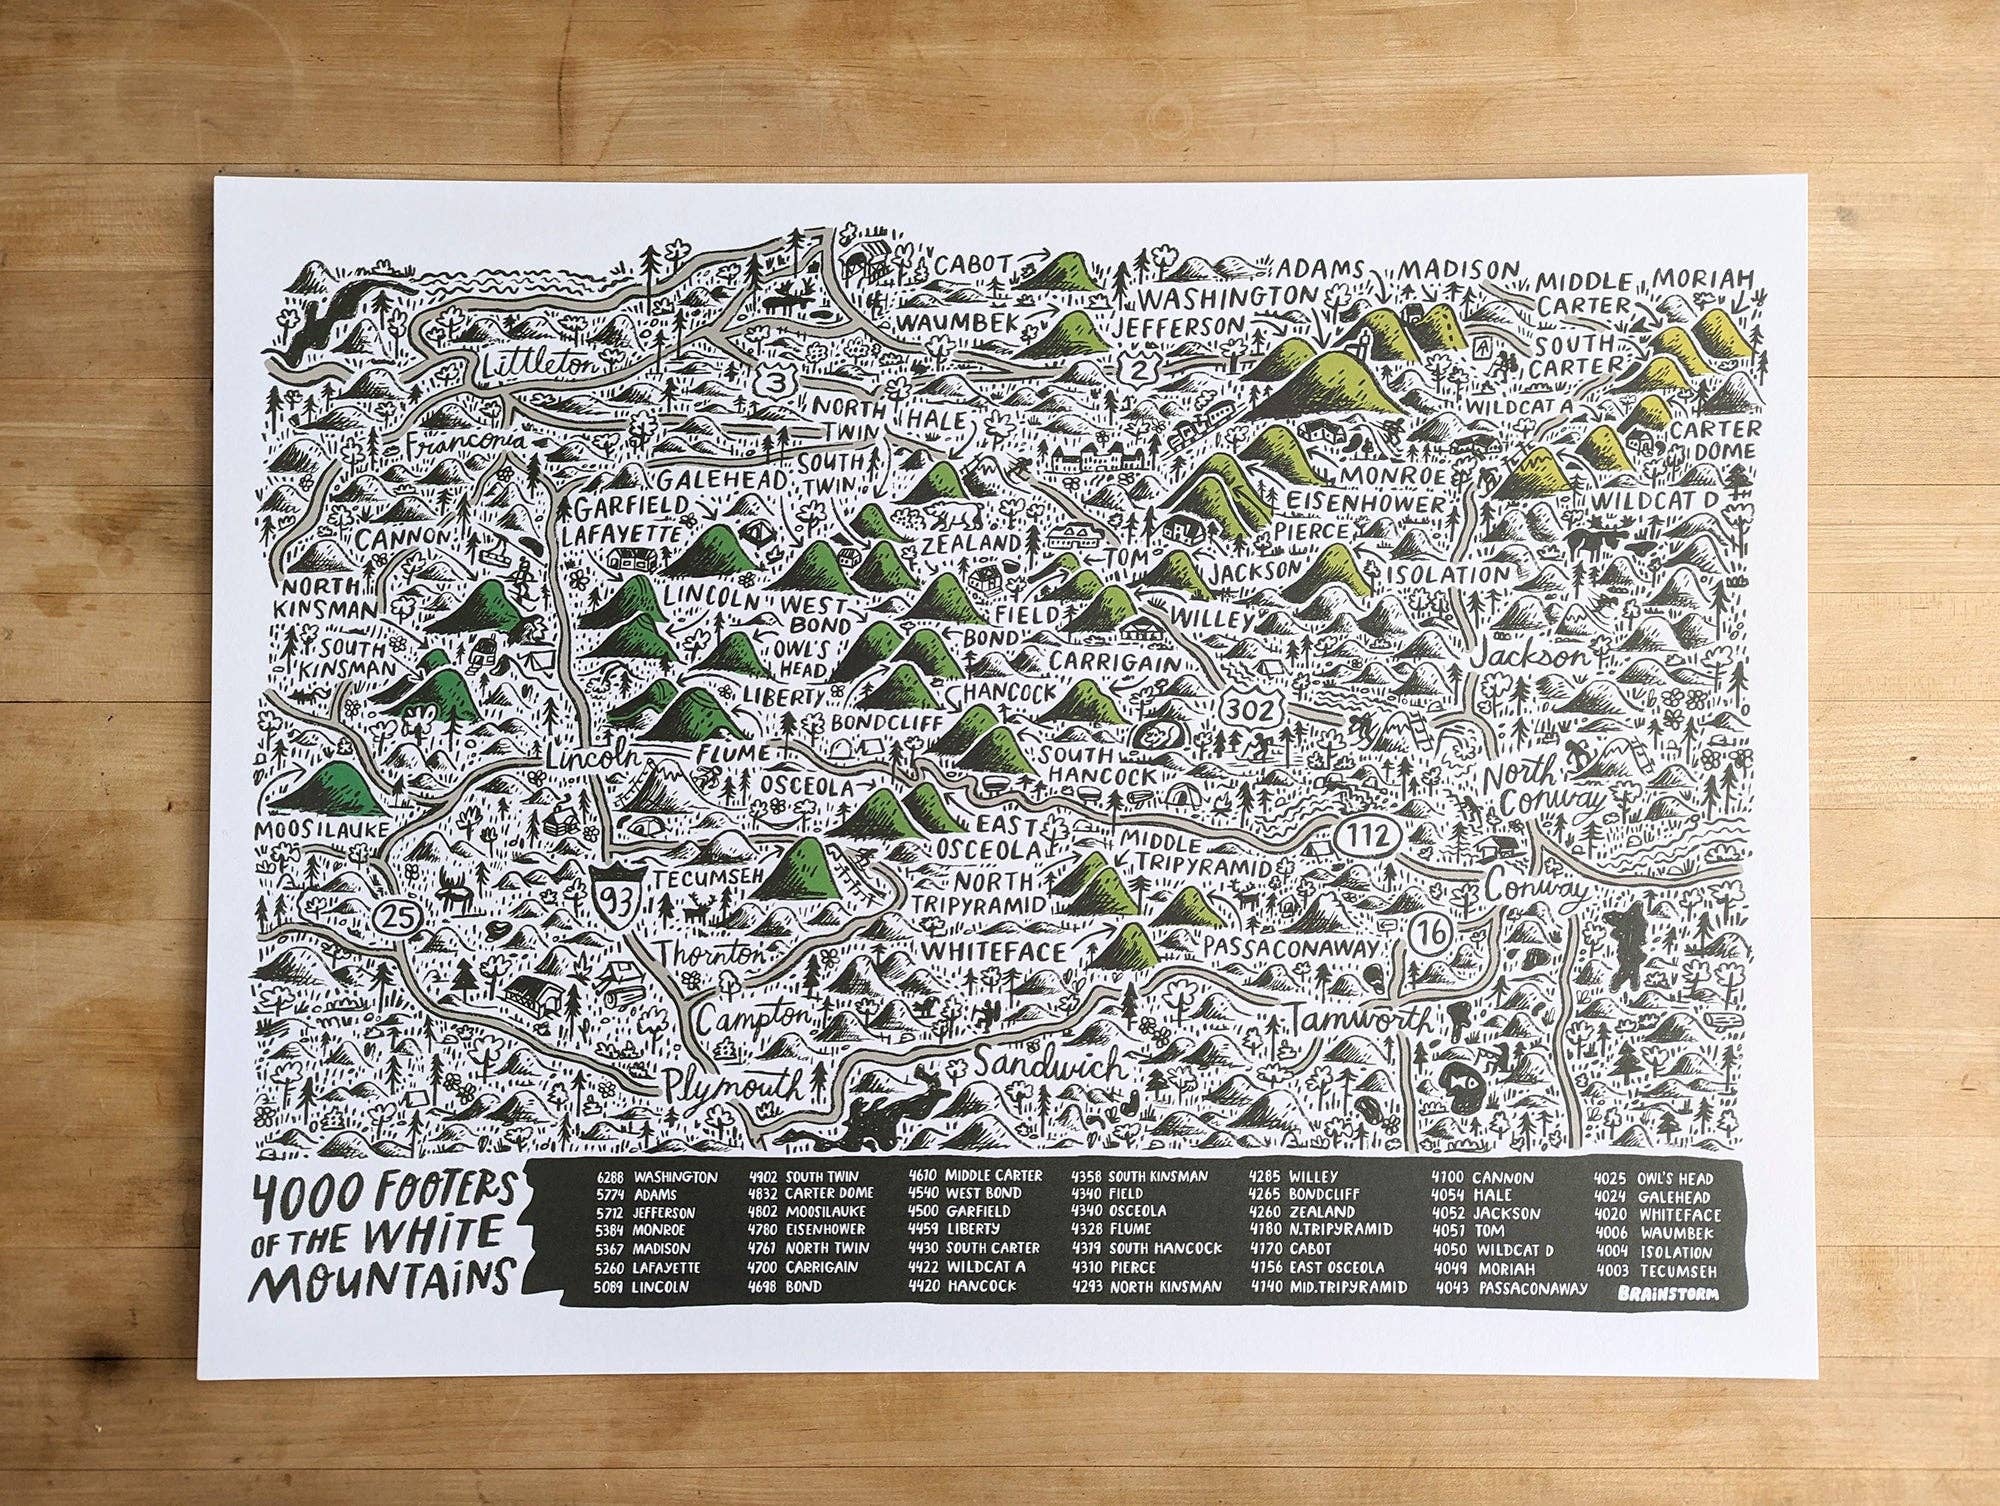 CABOT
ADAMS
MADISON
MIDDLE
CARTER
MORIAH
WASHINGTON
WAUMBEK
JEFFERSON
SOUTH
CARTER
Littleton
3
2
NORTH
TWIN
HALE
WILDCAT A
CARTER
DOME
Franconia
SOUTH
TWIN
GALEHEAD
MONROE
GARFIELD
EISENHOWER
WILDCAT D
LAFAYETTE
CANNON
ZEALAND
TOM
PIERCE
JACKSON
ISOLATION
NORTH
KINSMAN
LINCOLN
WEST
BOND
FIELD
WILLEY
BOND
OWL'S
HEAD
SOUTH
KINSMAN
CARRIGAIN
Jackson
LIBERTY
HANCOCK
302
BONDCLIFF
Lincoln
FLUME
SOUTH
HANCOCK
North
Conway
OSCEOLA
MOOSILAUKE
EAST
OSCEOLA
MIDDLE
TRIPYRAMID
112
TECUMSEH
NORTH
TRIPYRAMID
Conway
93
25
16
Thornton
WHITEFACE
PASSACONAWAY
Campton
Tamworth
Sandwich
Plymouth
4000 FOOTERS
OF THE WHITE
MOUNTAINS
6288 WASHINGTON
5774 ADAMS
5712 JEFFERSON
5384 MONROE
5367 MADISON
5260 LAFAYETTE
5089 LINCOLN
4902 SOUTH TWIN
4832 CARTER DOME
4802 MOOSILAUKE
4780 EISENHOWER
4761 NORTH TWIN
4700 CARRIGAIN
4698 BOND
4610 MIDDLE CARTER
4540 WEST BOND
4500 GARFIELD
4459 LIBERTY
4430 SOUTH CARTER
4422 WILDCAT A
4420 HANCOCK
4358 SOUTH KINSMAN
4340 FIELD
4340 OSCEOLA
4328 FLUME
4319 SOUTH HANCOCK
4310 PIERCE
4293 NORTH KINSMAN
4285 WILLEY
4265 BONDCLIFF
4260 ZEALAND
4180 N.TRIPYRAMID
4170 CABOT
4156 EAST OSCEOLA
4140 MID.TRIPYRAMID
4100 CANNON
4054 HALE
4052 JACKSON
4051 TOM
4050 WILDCAT D
4049 MORIAH
4043 PASSACONAWAY
4025 OWL'S HEAD
4024 GALEHEAD
4020 WHITEFACE
4006 WAUMBEK
4004 ISOLATION
4003 TECUMSEH
BRAINSTORM